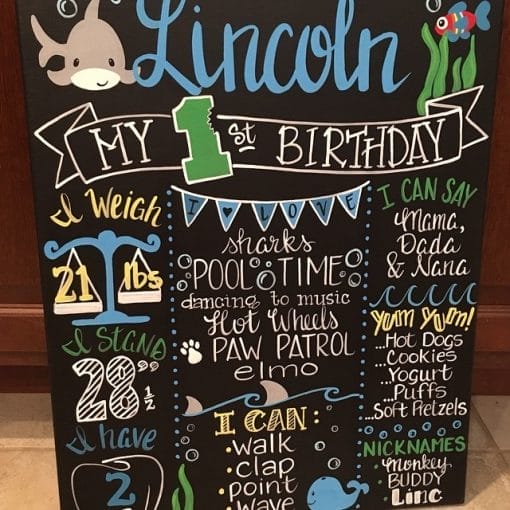 Lincoln
MY 1st BIRTHDAY
I Weigh
21 lbs
I STAND
28" 1/2
I have
2
I ♥ LOVE
sharks
POOL TIME
dancing to music
Hot Wheels
PAW PATROL
elmo
I CAN:
• walk
• clap
• point
• wave
I CAN SAY
Mama,
Dada
& Nana
YUM YUM!
...Hot Dogs
...Cookies
...Yogurt
...Puffs
...Soft Pretzels
NICKNAMES
• Monkey
• BUDDY
• Linc